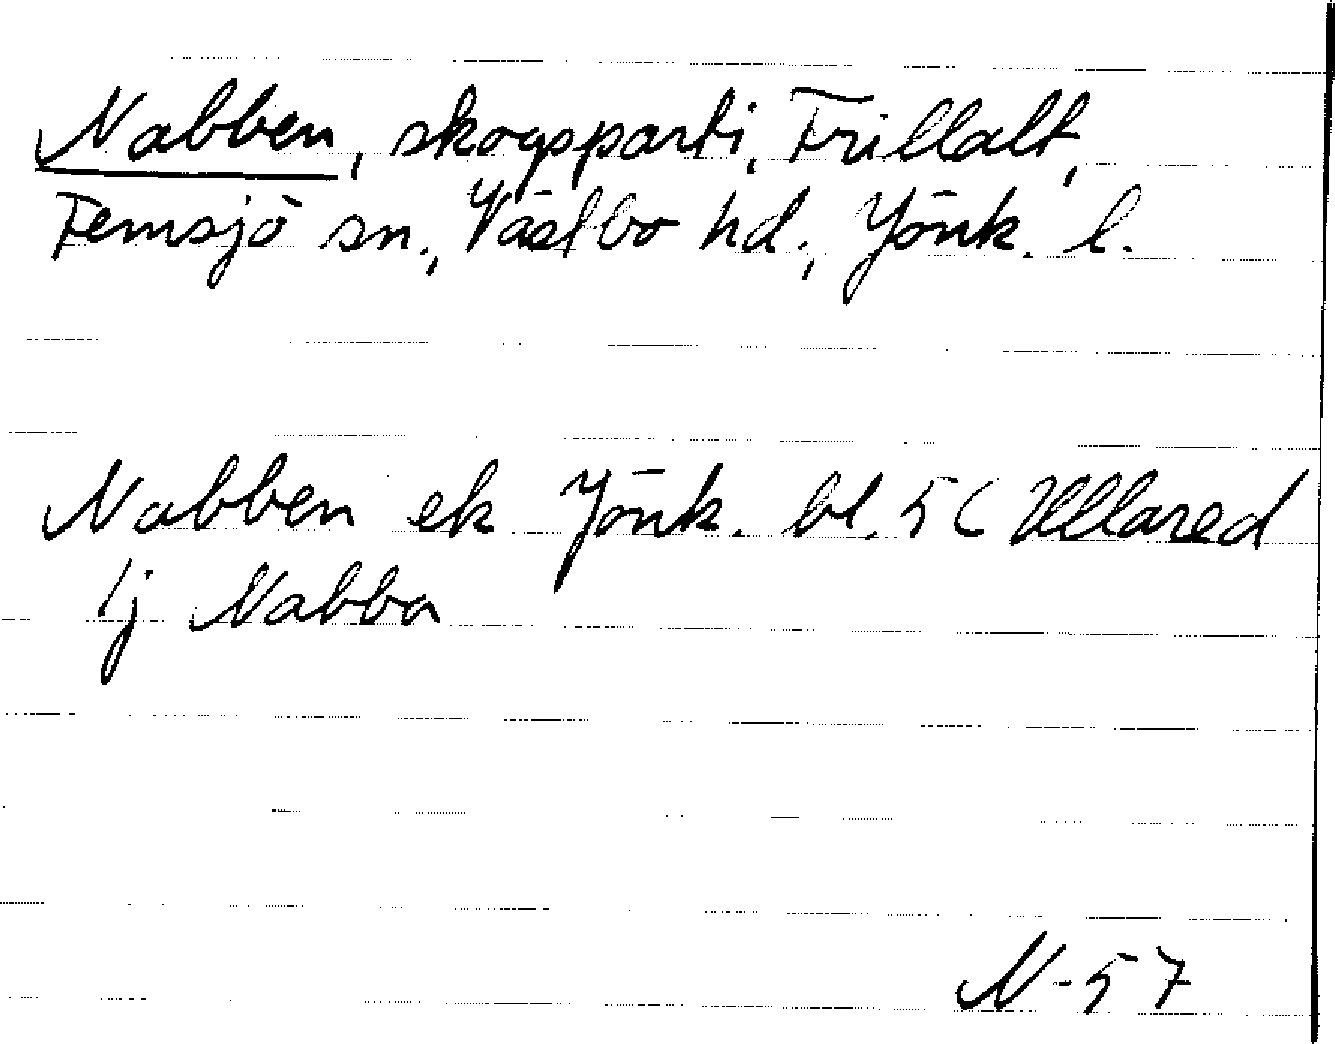 Nabben, skogsparti, Frillalt,
Femsjö sn., Västbo hd., Jönk. l.
Nabben ek Jönk. bl. 5 C Ullared
lj Nabba
N-57